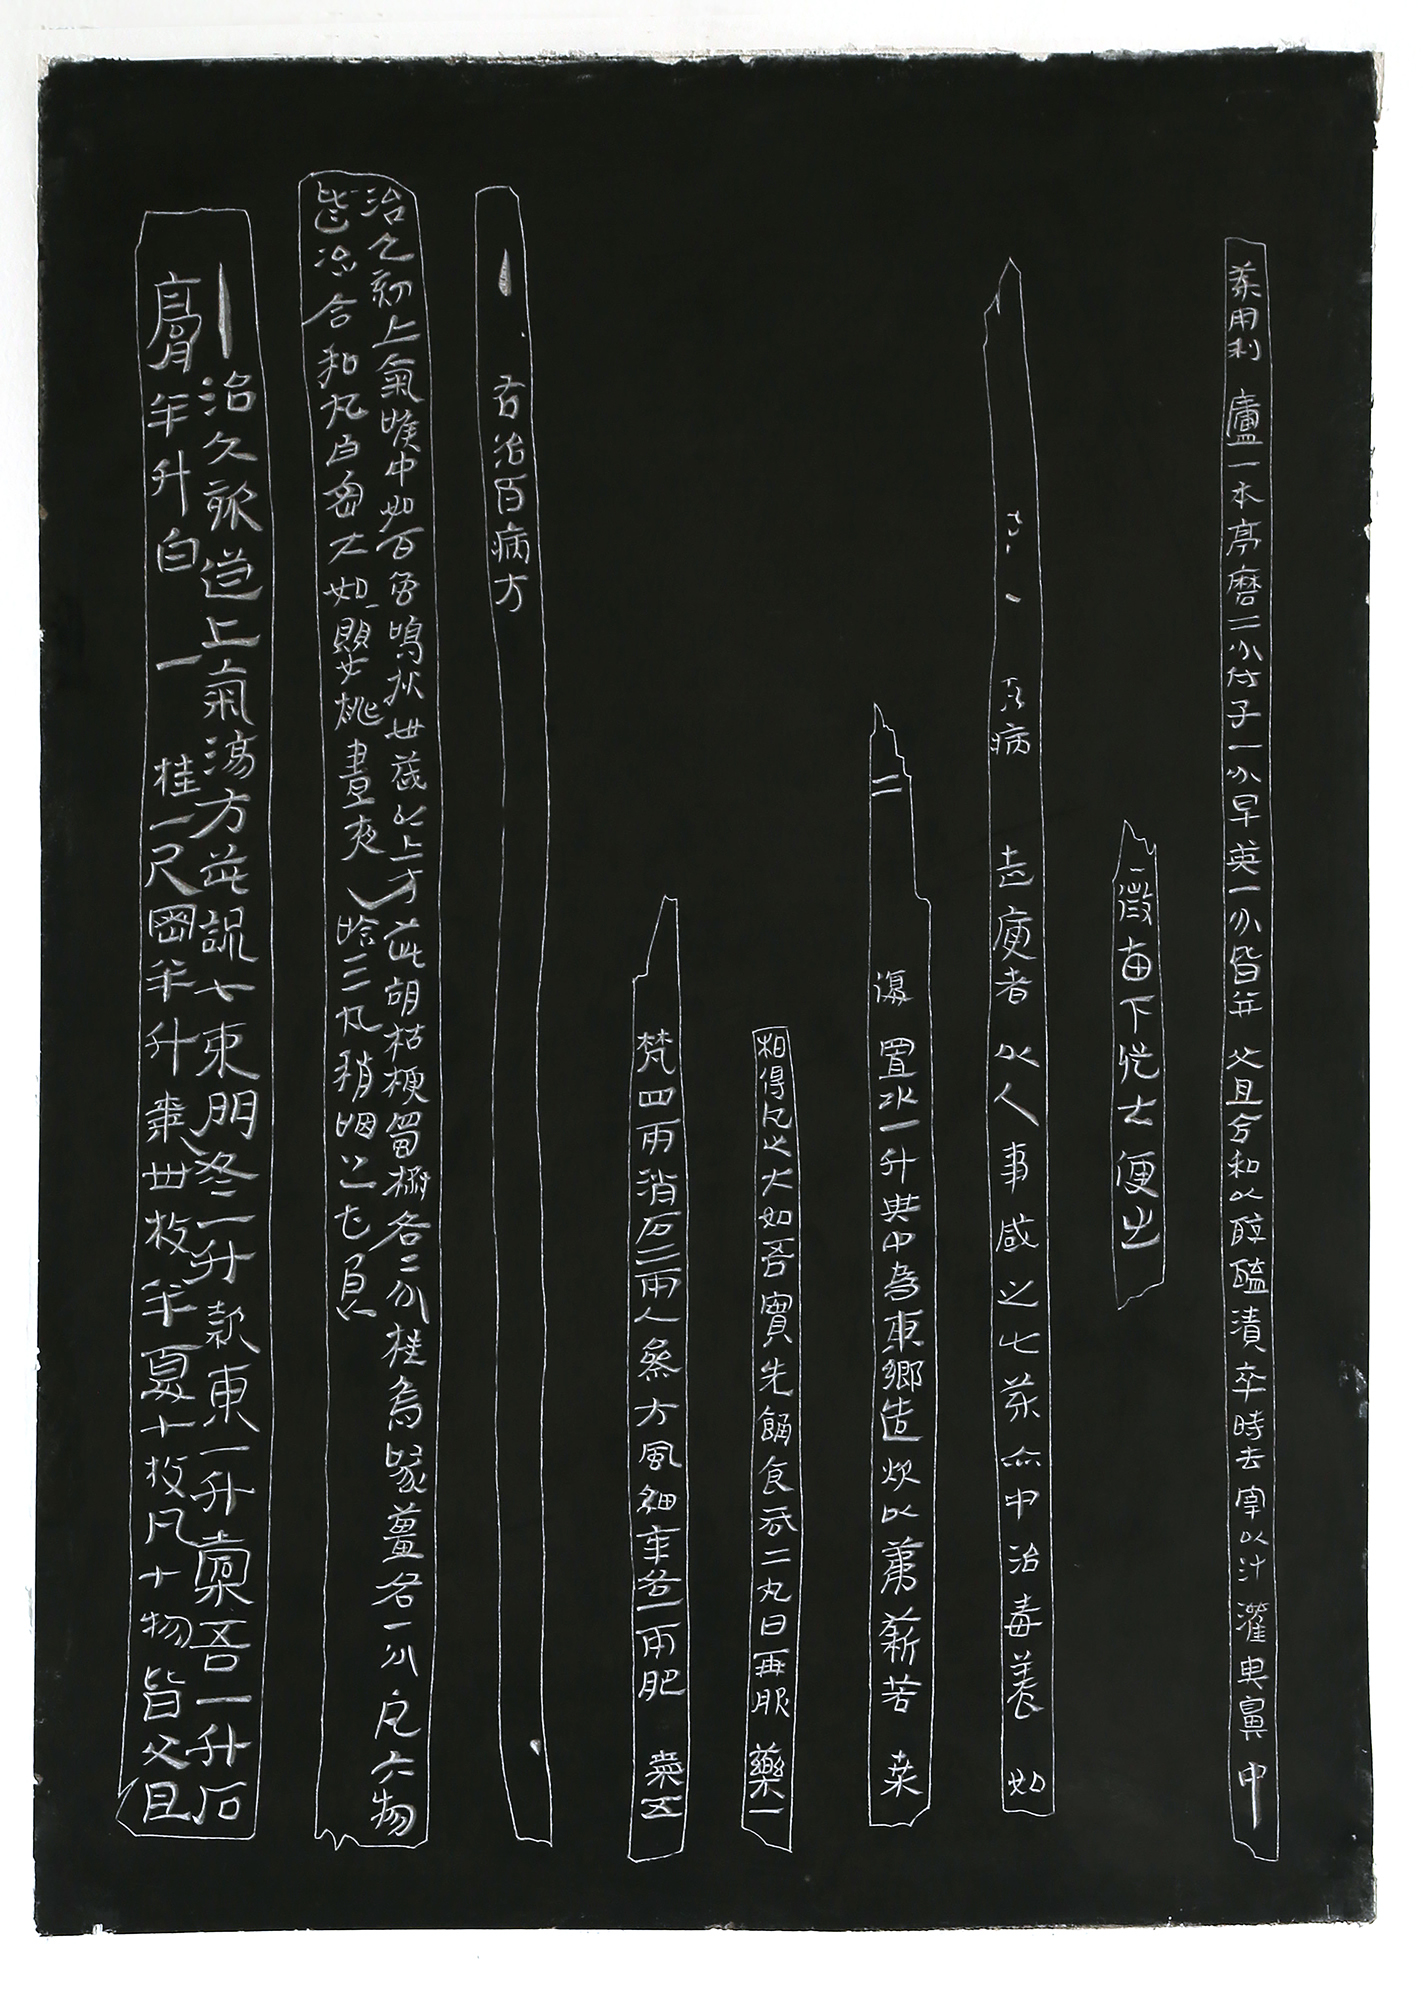 茱用利廬一本亭磨二分付子一分早莢一分皆并父且合和以醇醯漬卒時去宰以汁灌其鼻中
徵下去便出
病者以人事感之此藥亦中治毒養如
二置水一升其中為東鄉造炊以葦薪若桑
相得丸之大如吾實先餔食吞二丸日再服藥一
樊四兩消石二兩人參方風細辛各一兩肥棗五
右治百病方
治久欬上氣喉中如百虫鳴狀卅歲以上方茈胡桔梗蜀椒各二分桂烏喙薑各一分凡六物
皆冶合和丸白密大如嬰桃晝夜含三丸稍咽之甚良
治久欬逆上氣湯方茈菀七束門冬一升款東一升橐吾一升石
膏半升白一桂一尺密半升棗卅枚半夏十枚凡十物皆父且